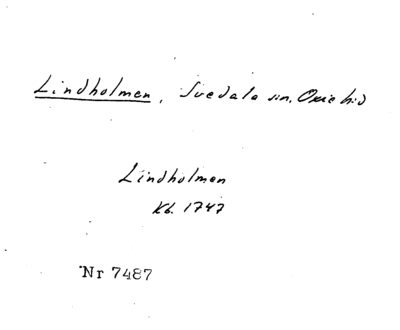 Lindholmen, Svedala sn, Oxie hd
Lindholmen
Kb. 1747
Nr 7487